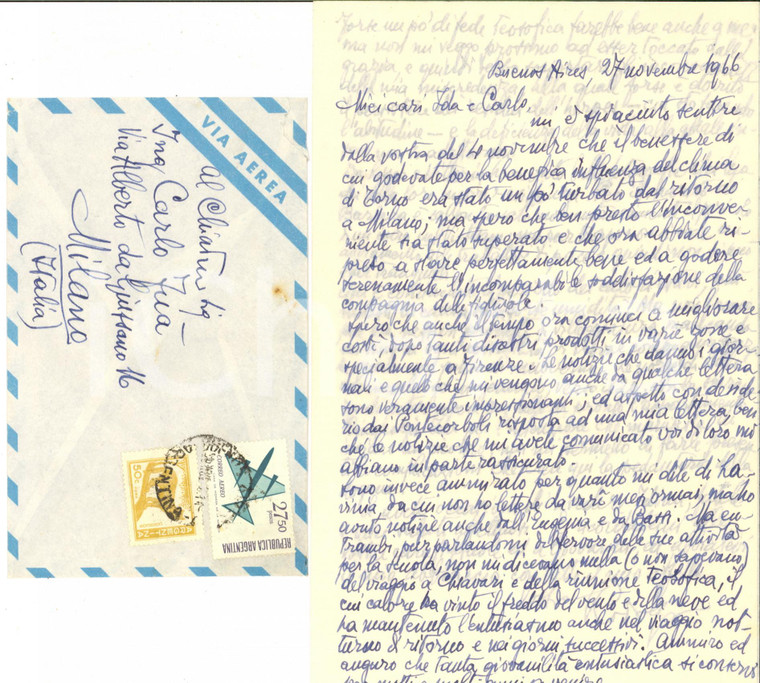 VIA AEREA
Al Chiar.mo Sig.
Ing. Carlo
Via Alberto da Giussano 16
Milano
(Italia)
50c
ARGENTINA
CORREO AEREO
27.50
REPUBLICA ARGENTINA
Forse un po' di fede Teosofica farebbe bene anche a me;
ma non mi veggo prossimo ad esser toccato dalla
grazia, e quindi
Buenos Aires 27 novembre 1966
Miei cari Ida e Carlo,
mi è spiaciuto sentere
dalla vostra del 4 novembre che il benessere di
cui godevate per la benefica influenza del clima
di era stato un po' turbato dal ritorno
a Milano; ma spero che ben presto l'inconve-
niente sia stato superato e che ora abbiate ri-
preso a stare perfettamente bene ed a godere
serenamente l'incomparabile soddisfazione della
compagnia delle
Spero che anche il tempo ora cominci a migliorare
costì, dopo tanti disastri prodotti in varie zone e
specialmente a Firenze. Le notizie che danno i gior-
nali e quelle che mi vengono anche da qualche lettera
sono veramente impressionanti; ed aspetto con deside-
rio dai Pontecorboli risposta ad una mia lettera, ben-
chè le notizie che mi avete comunicato voi di loro mi
abbiano in parte rassicurato.
Sono invece ammirato per quanto mi dite di
da cui non ho lettere da vari mesi ormai, ma ho
avuto notizie anche dall'Eugenia e da Bassi. Ma en-
trambi, pur parlandomi di fervore delle sue attività
per la scuola, non mi dicevano nulla (o non sapevano)
del viaggio a Chiavari e della riunione Teosofica, il
cui calore ha vinto il freddo del vento e della neve ed
ha mantenuto l'entusiasmo anche nel viaggio not-
turno di ritorno e nei giorni successivi. Ammiro ed
auguro che tanta giovanilità entusiastica si conservi
per molti e molti anni